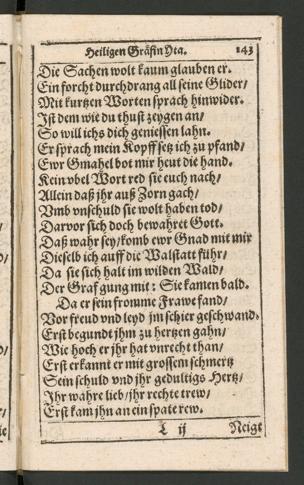 Heiligen Gräfin Yta. 143
Die Sachen wolt kaum glauben er.
Ein forcht durchdrang all seine Glider/
Mit kurtzen Worten sprach hinwider.
Ist dem wie du thust zeygen an/
So will ichs dich geniessen lahn.
Er sprach mein Kopff setz ich zu pfand/
Ewr Gmahel bot mir heut die hand.
Kein vbel Wort red sie euch nach/
Allein daß jhr auß Zorn gach/
Vmb vnschuld sie wolt haben tod/
Darvor sich doch bewahret Gott.
Daß wahr sey/ komb ewr Gnad mit mir
Dieselb ich auff die Walstatt führ/
Da sie sich halt im wilden Wald/
Der Graf gung mit: Sie kamen bald.
Da er sein fromme Frawe fand/
Vor freud vnd leyd jm schier geschwand.
Erst begundt jhm zu hertzen gahn/
Wie hoch er jhr hat vnrecht than/
Erst erkannt er mit grossem schmertz
Sein schuld vnd jhr gedultigs Hertz/
Ihr wahre lieb/ jhr rechte trew/
Erst kam jhn an ein spate rew.
L ij Neigt